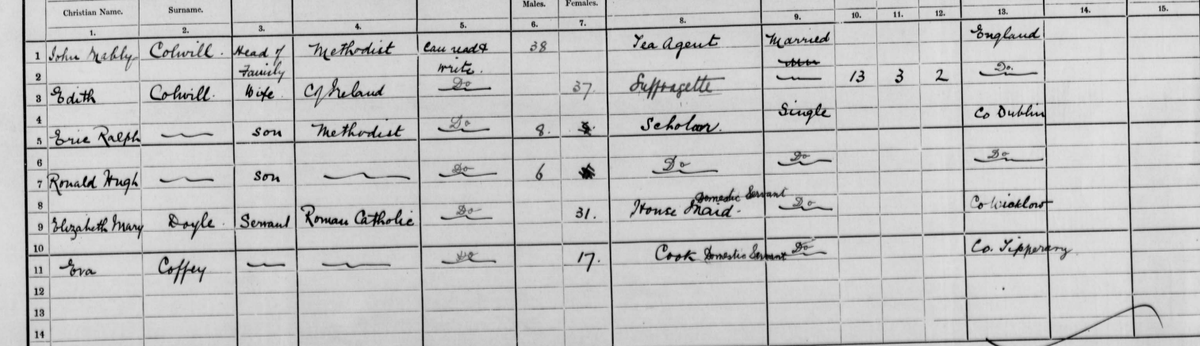 Christian Name. Surname. Males. Females.
1. 2. 3. 4. 5. 6. 7. 8. 9. 10. 11. 12. 13. 14. 15.
1 John Mably Colwill Head of Family Methodist Can read & write. 38 Tea Agent Married England
2
3 Edith Colwill Wife C of Ireland Do 37. Suffragette 13 3 2 Do
4
5 Eric Ralph son Methodist Do 8. Scholar Single Co Dublin
6
7 Ronald Hugh son Do 6 Do Do Do
8
9 Elizabeth Mary Doyle Servant Roman Catholic Do 31. House Maid. Domestic Servant Do Co Wicklow
10
11 Eva Coffey Do 17. Cook Domestic Servant Do Co. Tipperary
12
13
14